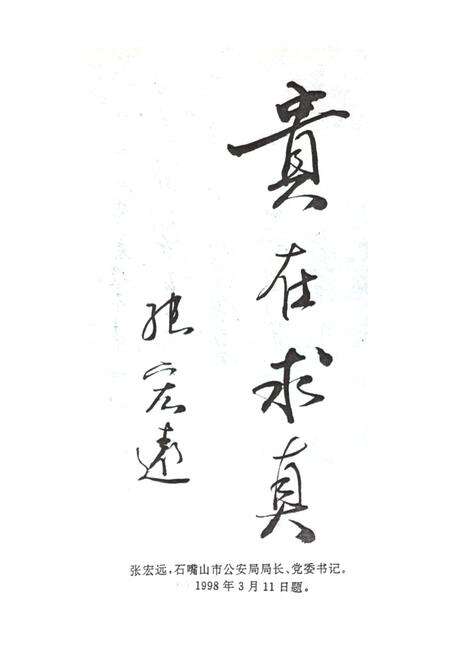 貴在求真
張宏遠
张宏远，石嘴山市公安局局长、党委书记。
1998年3月11日题。